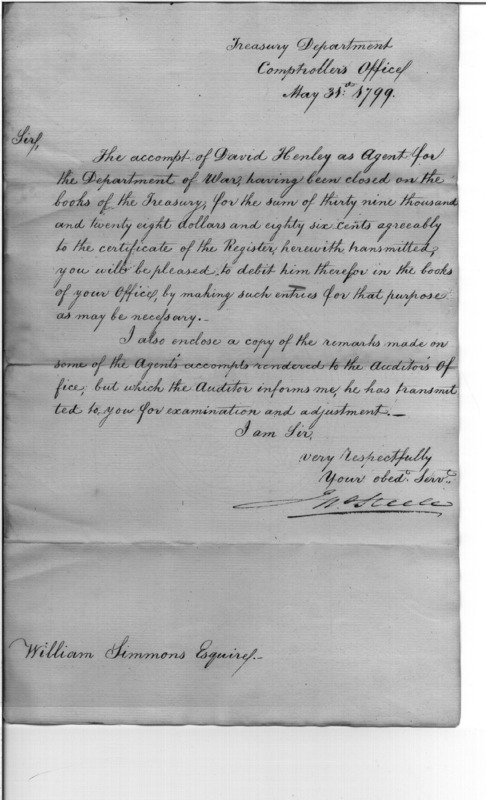 Treasury Department
Comptroller's Office
May 31st 1799.
Sir,
The accompt of David Henley as Agent for
the Department of War, having been closed on the
books of the Treasury, for the sum of thirty nine thousand
and twenty eight dollars and eighty six cents agreeably
to the certificate of the Register, herewith transmitted,
you will be pleased to debit him therefor in the books
of your Office, by making such entries for that purpose
as may be necessary.—
I also enclose a copy of the remarks made on
some of the Agent's accompts rendered to the Auditor's Of
fice, but which the Auditor informs me, he has transmit
ted to you for examination and adjustment.—
I am Sir,
very respectfully
Your obedt. Servt.
Jno. Steele
William Simmons Esquire.—